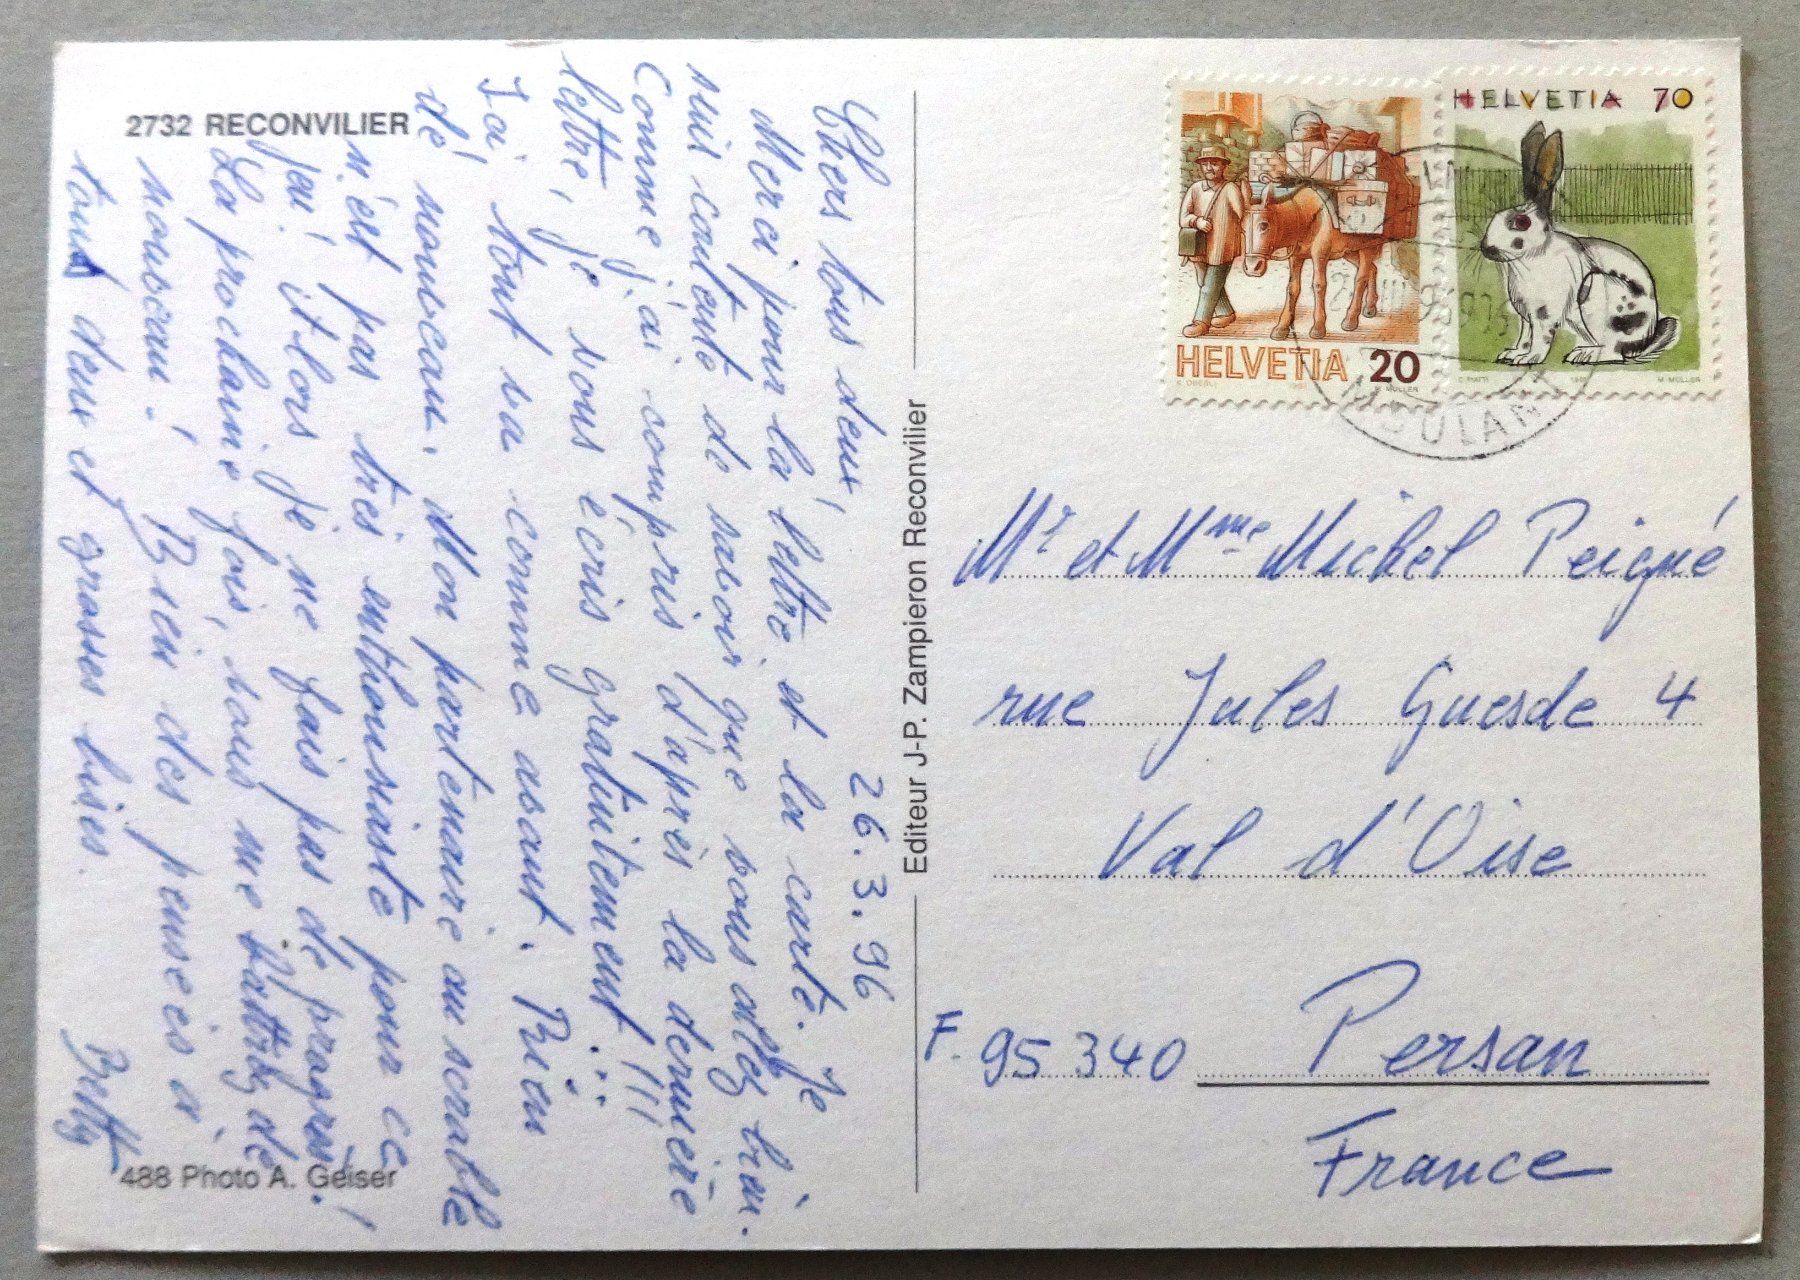 2732 RECONVILIER
26.3.96
Chers tous deux,
Merci pour la lettre et la carte. Je
suis contente de savoir que vous allez bien.
Comme j'ai compris d'après la dernière
lettre, je vous écris gratuitement !!!
Ici tout va comme avant. Rien
de nouveau. Mon partenaire au scrable
n'est pas très enthousiaste pour ce
jeu! Alors je ne fais pas de progrès!
La prochaine fois, vous me battez de
nouveau! Bien des pensées à
tous deux et grosses bises.
Betty
488 Photo A. Geiser
Editeur J-P. Zampieron Reconvilier
HELVETIA 20
HELVETIA 70
M. MÜLLER
AMBULANT
Mr et Mme Michel Peigné
rue Jules Guesde 4
Val d'Oise
F. 95 340 Persan
France